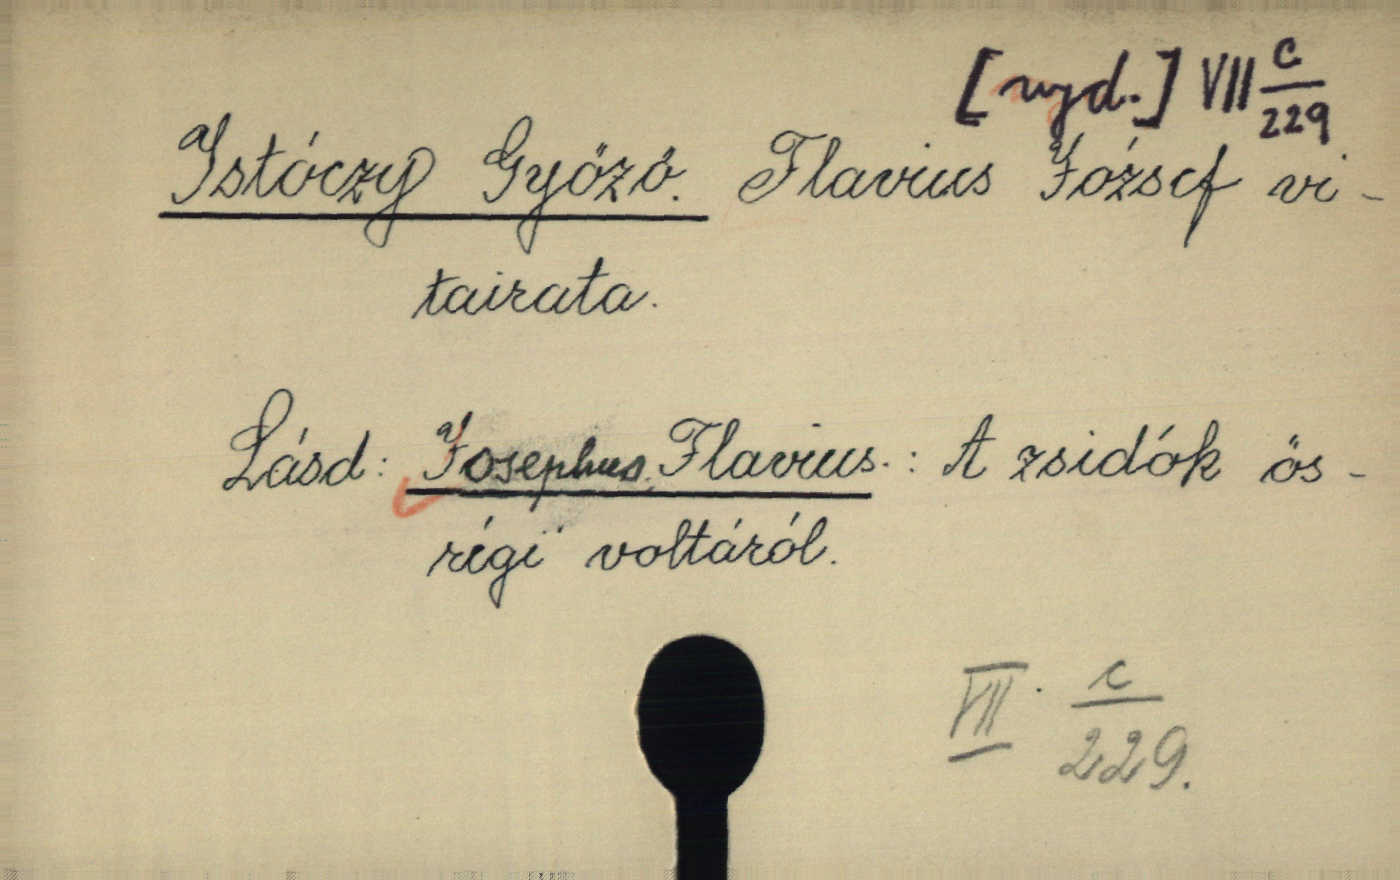 [ugyd.] VII c/229
Istóczy Győző. Flavius József vi-
tairata.
Lásd: Josephus, Flavius.: A zsidók ős-
régi voltáról.
VII. c/229.